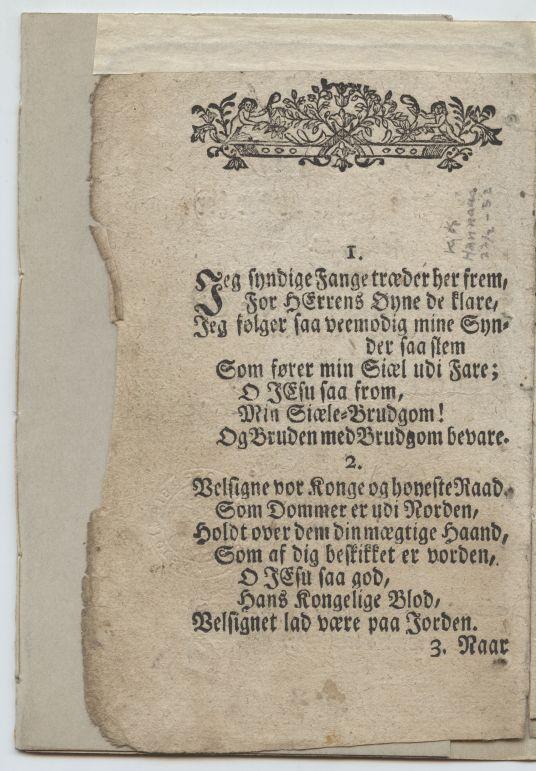 1.
Jeg syndige Fange træder her frem,
For HErrens Øyne de klare,
Jeg følger saa veemodig mine Syn-
der saa slem
Som fører min Siæl udi Fare;
O JEsu saa from,
Min Siæle-Brudgom!
Og Bruden med Brudgom bevare.
2.
Velsigne vor Konge og høyeste Raad,
Som Dommer er udi Norden,
Holdt over dem din mægtige Haand,
Som af dig beskikket er vorden,
O JEsu saa god,
Hans Kongelige Blod,
Velsignet lad være paa Jorden.
3. Naar